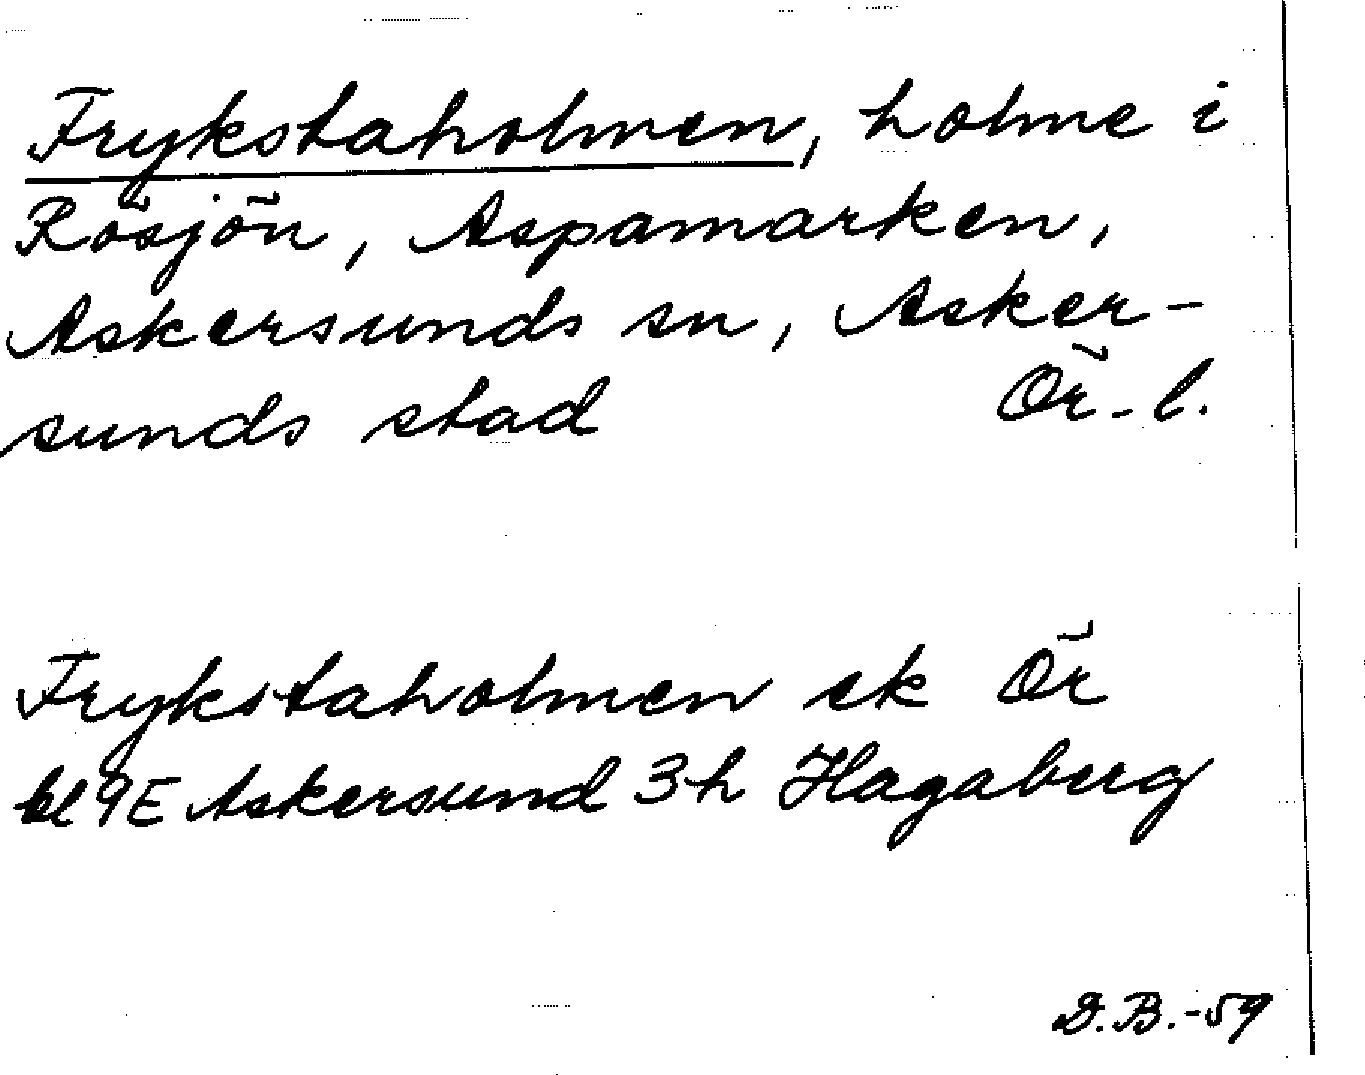 Frykstaholmen, holme i
Rösjön, Aspamarken,
Askersunds sn, Asker-
sunds stad Ör-l.
Frykstaholmen ek Ör
bl 9E Askersund 3h Hagaberg
D.B.-59